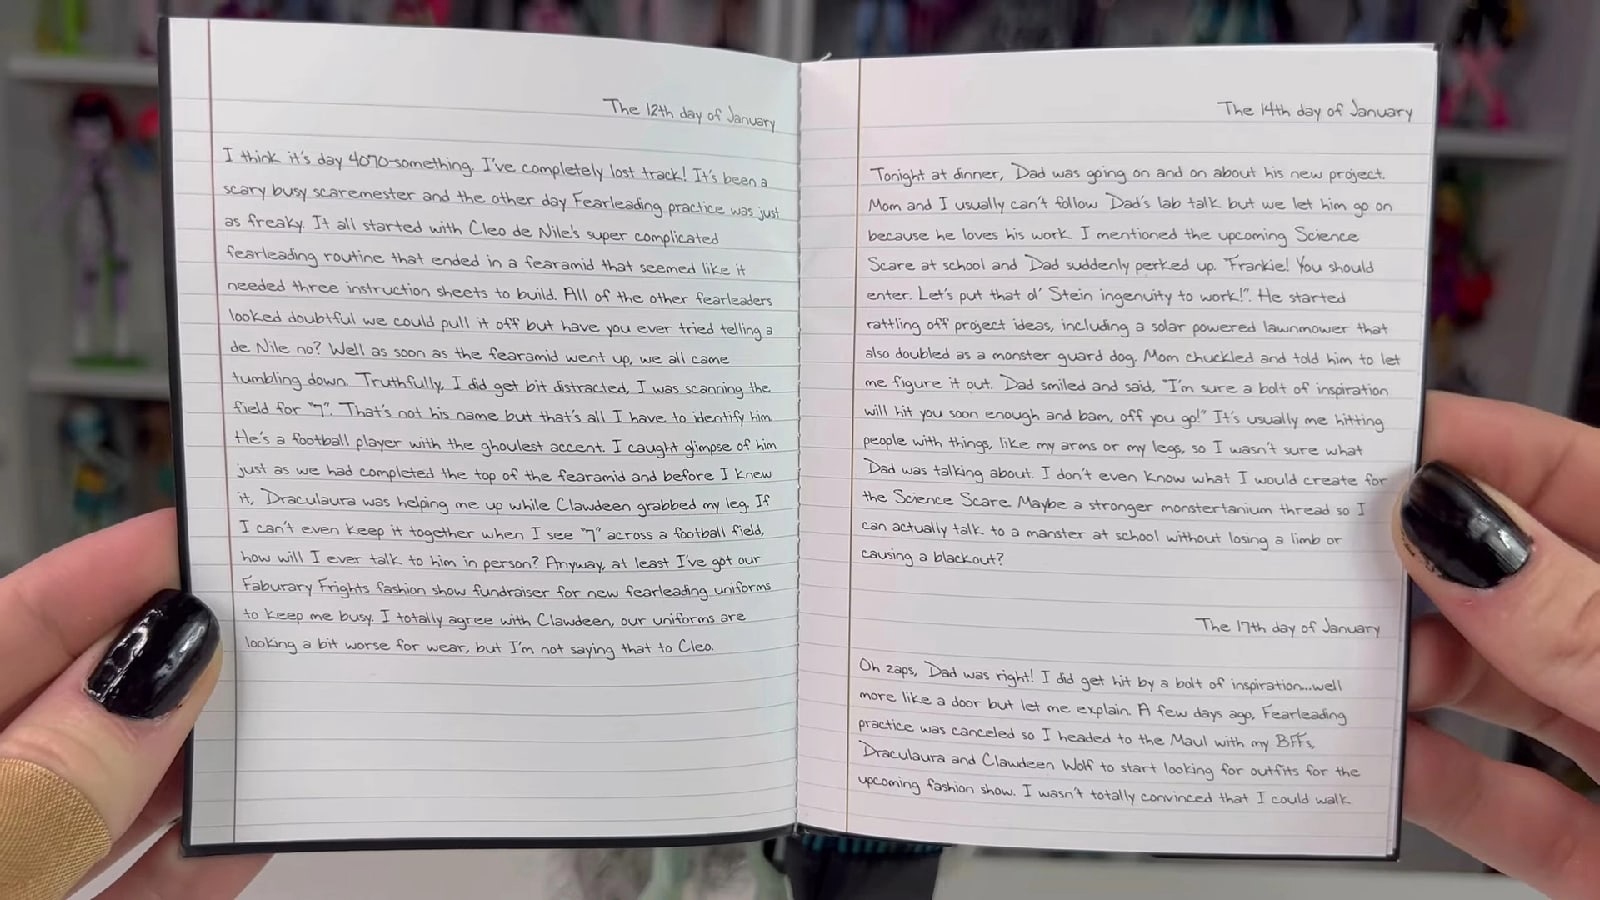 The 12th day of January
I think it's day 4070-something. I've completely lost track! It's been a
scary busy scaremester and the other day Fearleading practice was just
as freaky. It all started with Cleo de Nile's super complicated
fearleading routine that ended in a fearamid that seemed like it
needed three instruction sheets to build. All of the other fearleaders
looked doubtful we could pull it off but have you ever tried telling a
de Nile no? Well as soon as the fearamid went up, we all came
tumbling down. Truthfully, I did get bit distracted, I was scanning the
field for "7". That's not his name but that's all I have to identify him.
He's a football player with the ghoulest accent. I caught glimpse of him
just as we had completed the top of the fearamid and before I knew
it, Draculaura was helping me up while Clawdeen grabbed my leg. If
I can't even keep it together when I see "7" across a football field,
how will I ever talk to him in person? Anyway, at least I've got our
Faburary Frights fashion show fundraiser for new fearleading uniforms
to keep me busy. I totally agree with Clawdeen, our uniforms are
looking a bit worse for wear, but I'm not saying that to Cleo.
The 14th day of January
Tonight at dinner, Dad was going on and on about his new project.
Mom and I usually can't follow Dad's lab talk but we let him go on
because he loves his work. I mentioned the upcoming Science
Scare at school and Dad suddenly perked up. "Frankie! You should
enter. Let's put that ol' Stein ingenuity to work!". He started
rattling off project ideas, including a solar powered lawnmower that
also doubled as a monster guard dog. Mom chuckled and told him to let
me figure it out. Dad smiled and said, "I'm sure a bolt of inspiration
will hit you soon enough and bam, off you go!" It's usually me hitting
people with things, like my arms or my legs, so I wasn't sure what
Dad was talking about. I don't even know what I would create for
the Science Scare. Maybe a stronger monstertanium thread so I
can actually talk to a manster at school without losing a limb or
causing a blackout?
The 17th day of January
Oh zaps, Dad was right! I did get hit by a bolt of inspiration...well
more like a door but let me explain. A few days ago, Fearleading
practice was canceled so I headed to the Maul with my BFFs,
Draculaura and Clawdeen Wolf to start looking for outfits for the
upcoming fashion show. I wasn't totally convinced that I could walk